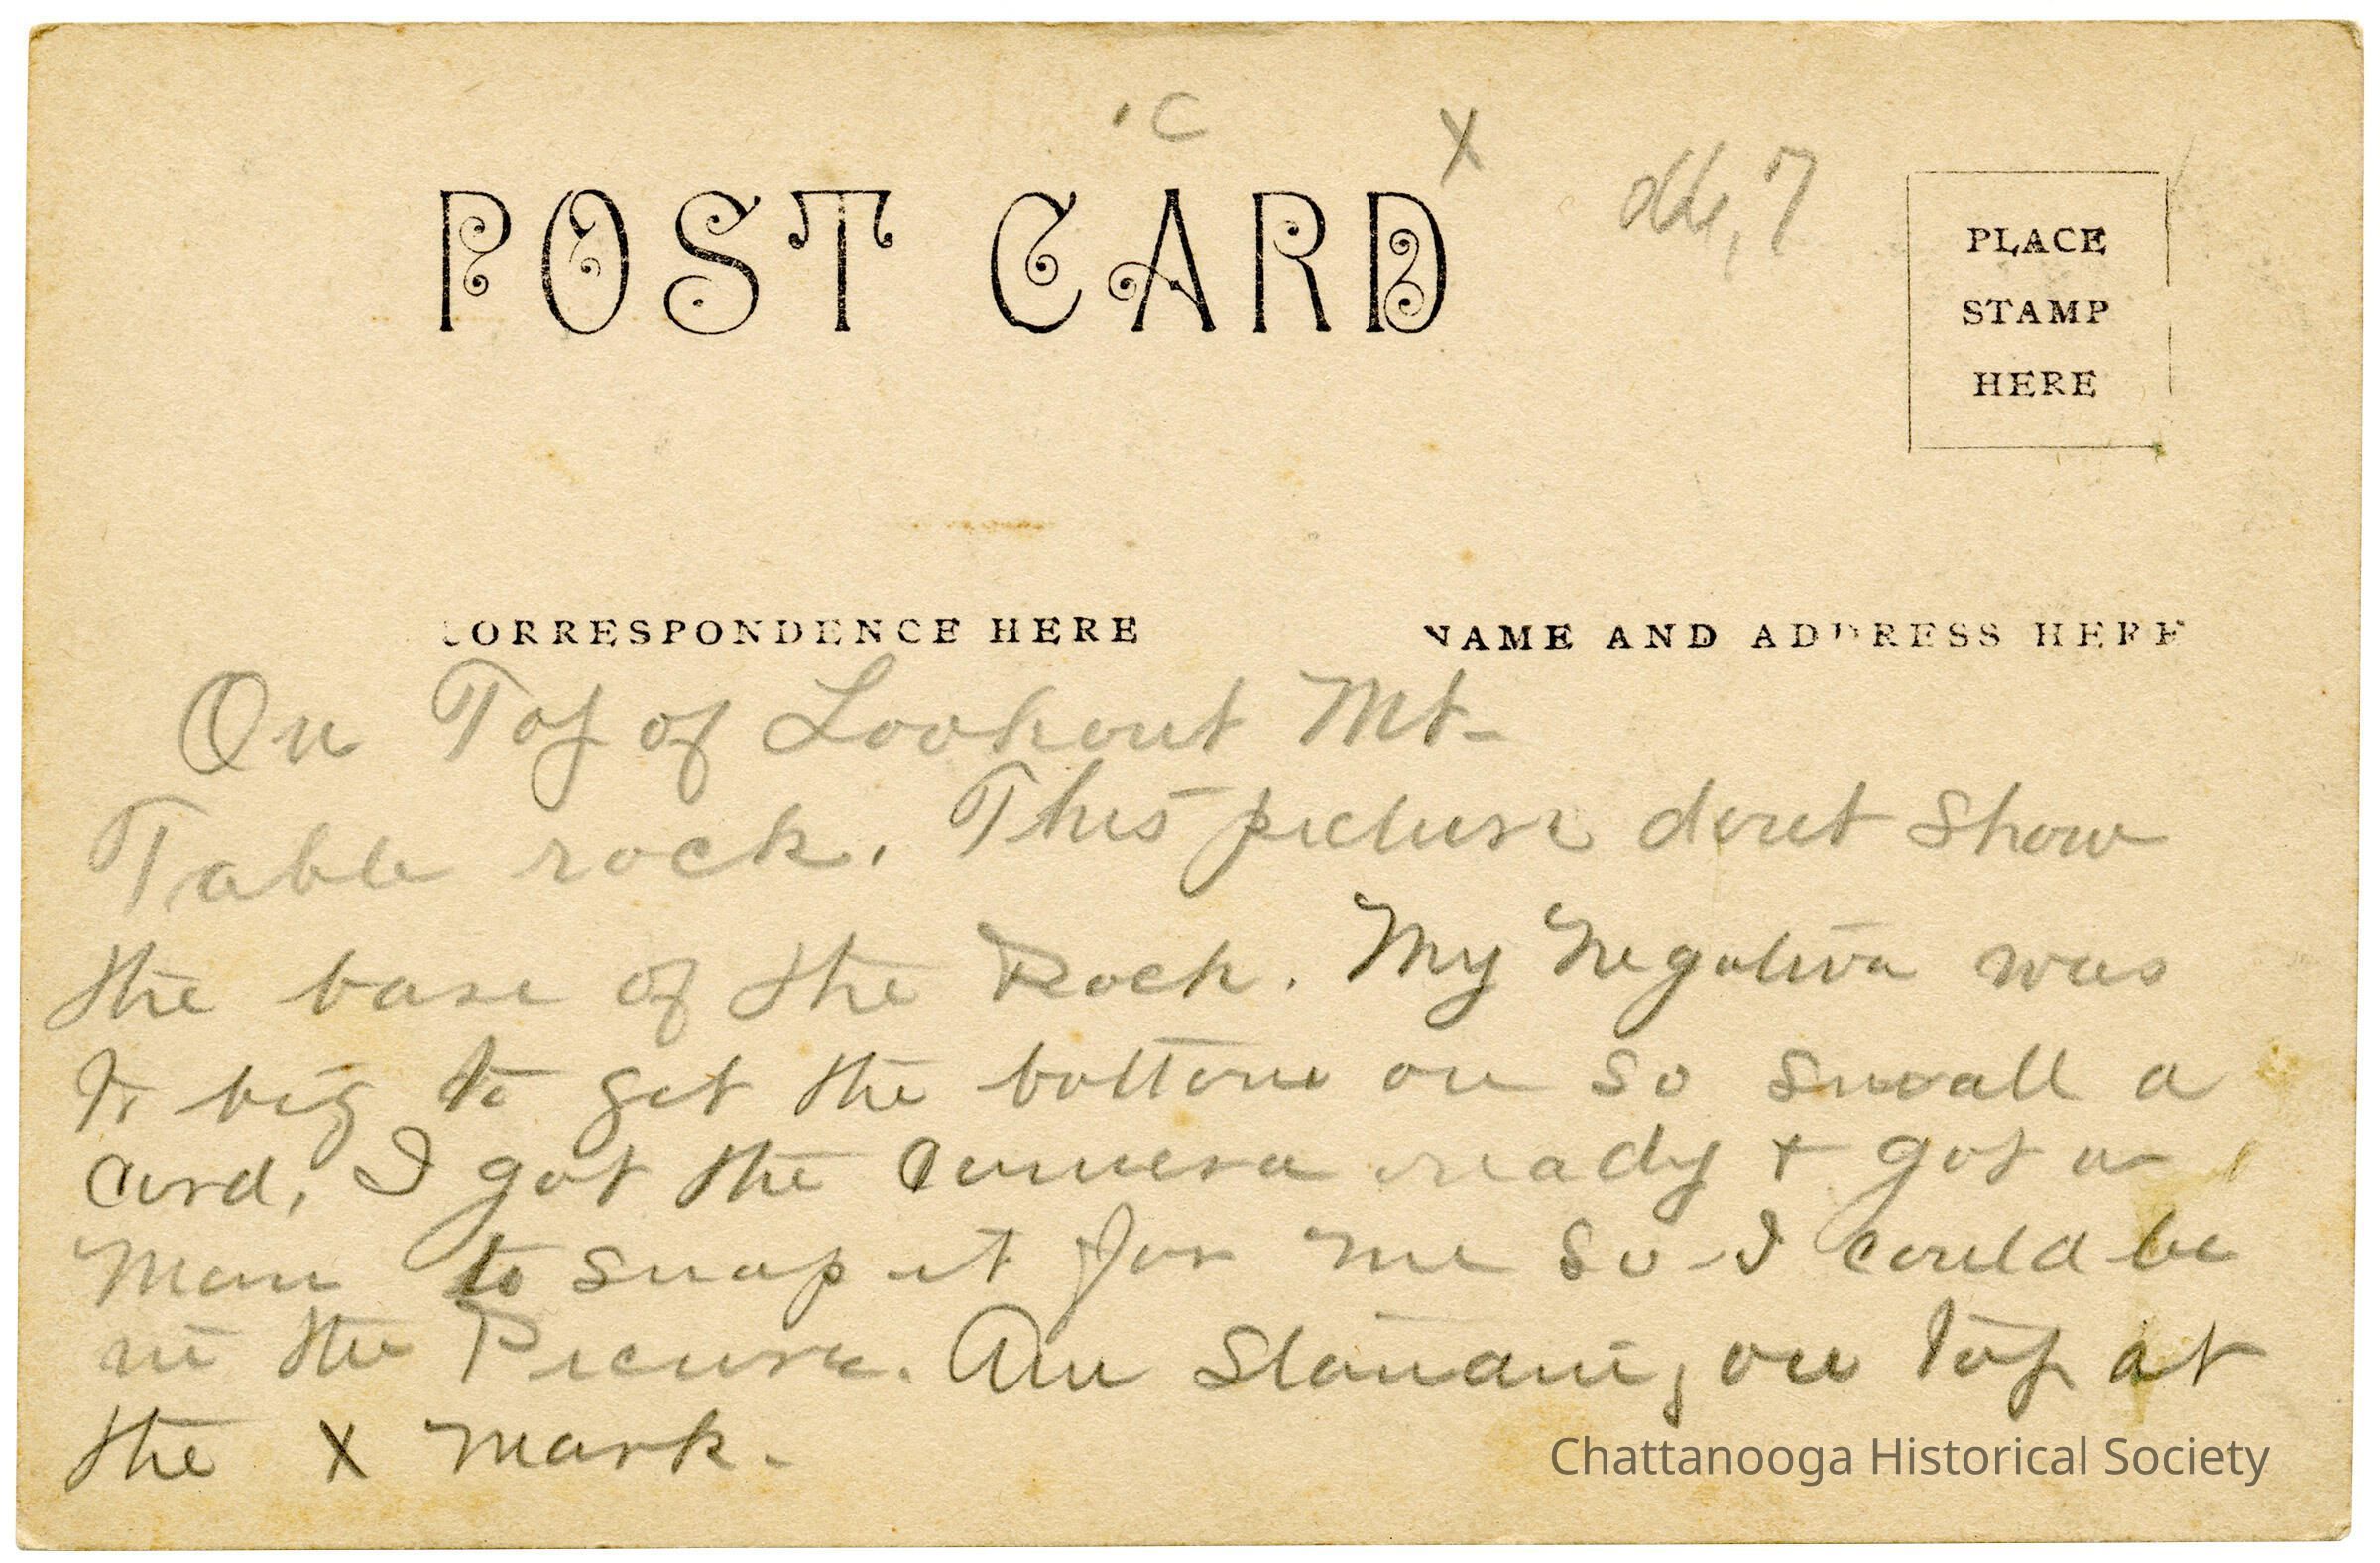 C
X
POST CARD
PLACE
STAMP
HERE
CORRESPONDENCE HERE
NAME AND ADDRESS HERE
On Top of Lookout Mt-
Table rock. This picture dont show
the base of the Rock. My Negative was
to big to get the bottom on so small a
Card, I got the Camera ready + got a
Man to snap it for me so I could be
in the Picture. Am Standing on top at
the X mark.
Chattanooga Historical Society